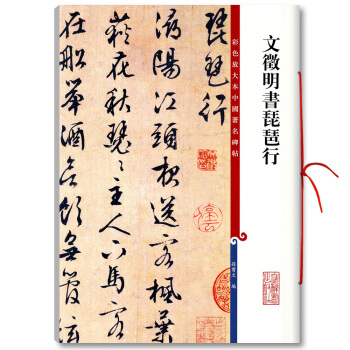 文徵明書琵琶行
彩色放大本中國著名碑帖
孫寶文 編
琵琶行
潯陽江頭夜送客楓葉
荻花秋瑟〻主人下馬客
在船舉酒欲飲無管絃